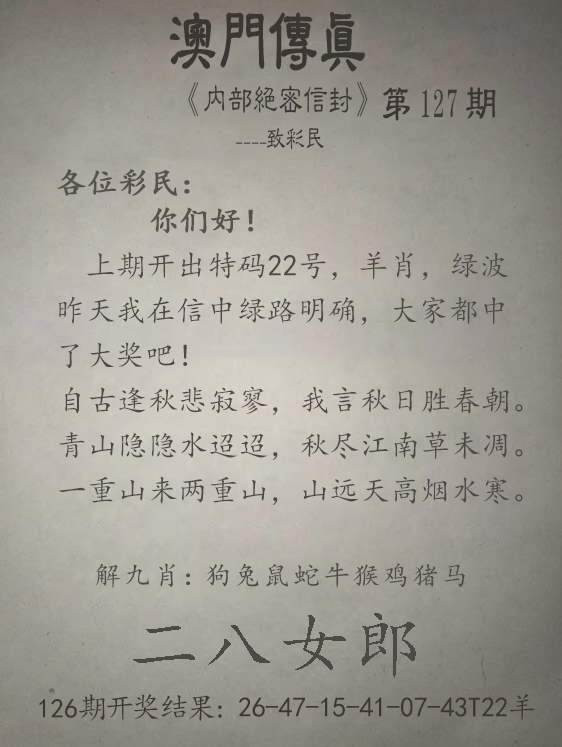 澳門傳眞
《内部絕密信封》第127期
----致彩民
各位彩民：
你们好！
上期开出特码22号，羊肖，绿波
昨天我在信中绿路明确，大家都中
了大奖吧！
自古逢秋悲寂寥，我言秋日胜春朝。
青山隐隐水迢迢，秋尽江南草未凋。
一重山来两重山，山远天高烟水寒。
解九肖：狗兔鼠蛇牛猴鸡猪马
二八女郎
126期开奖结果：26-47-15-41-07-43T22羊